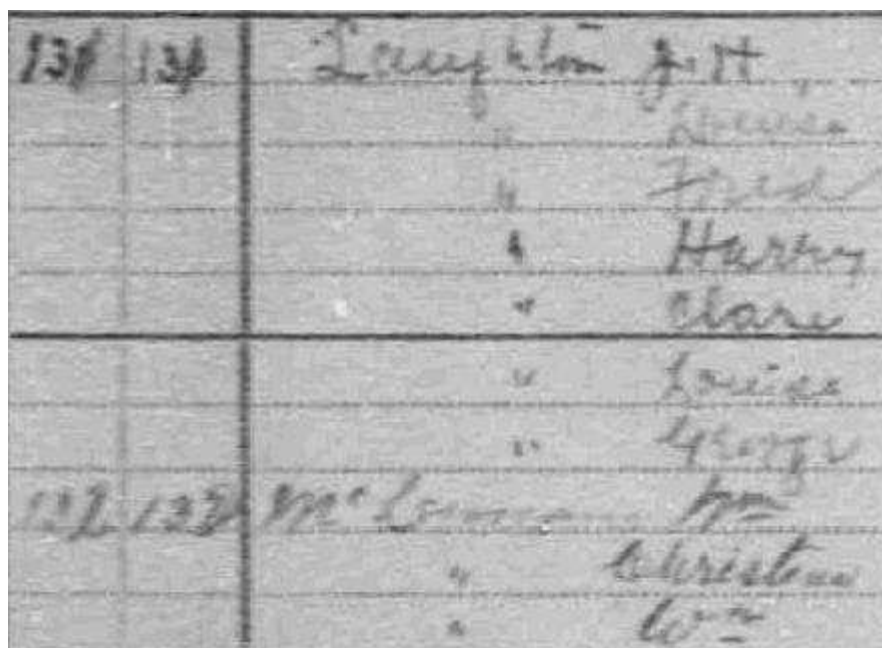 131 131 Laughton J. H.
" Louisa
" Fred
" Harry
" Clare
" Louise
" George
132 132 Mc Wm
" Christena
" Wm